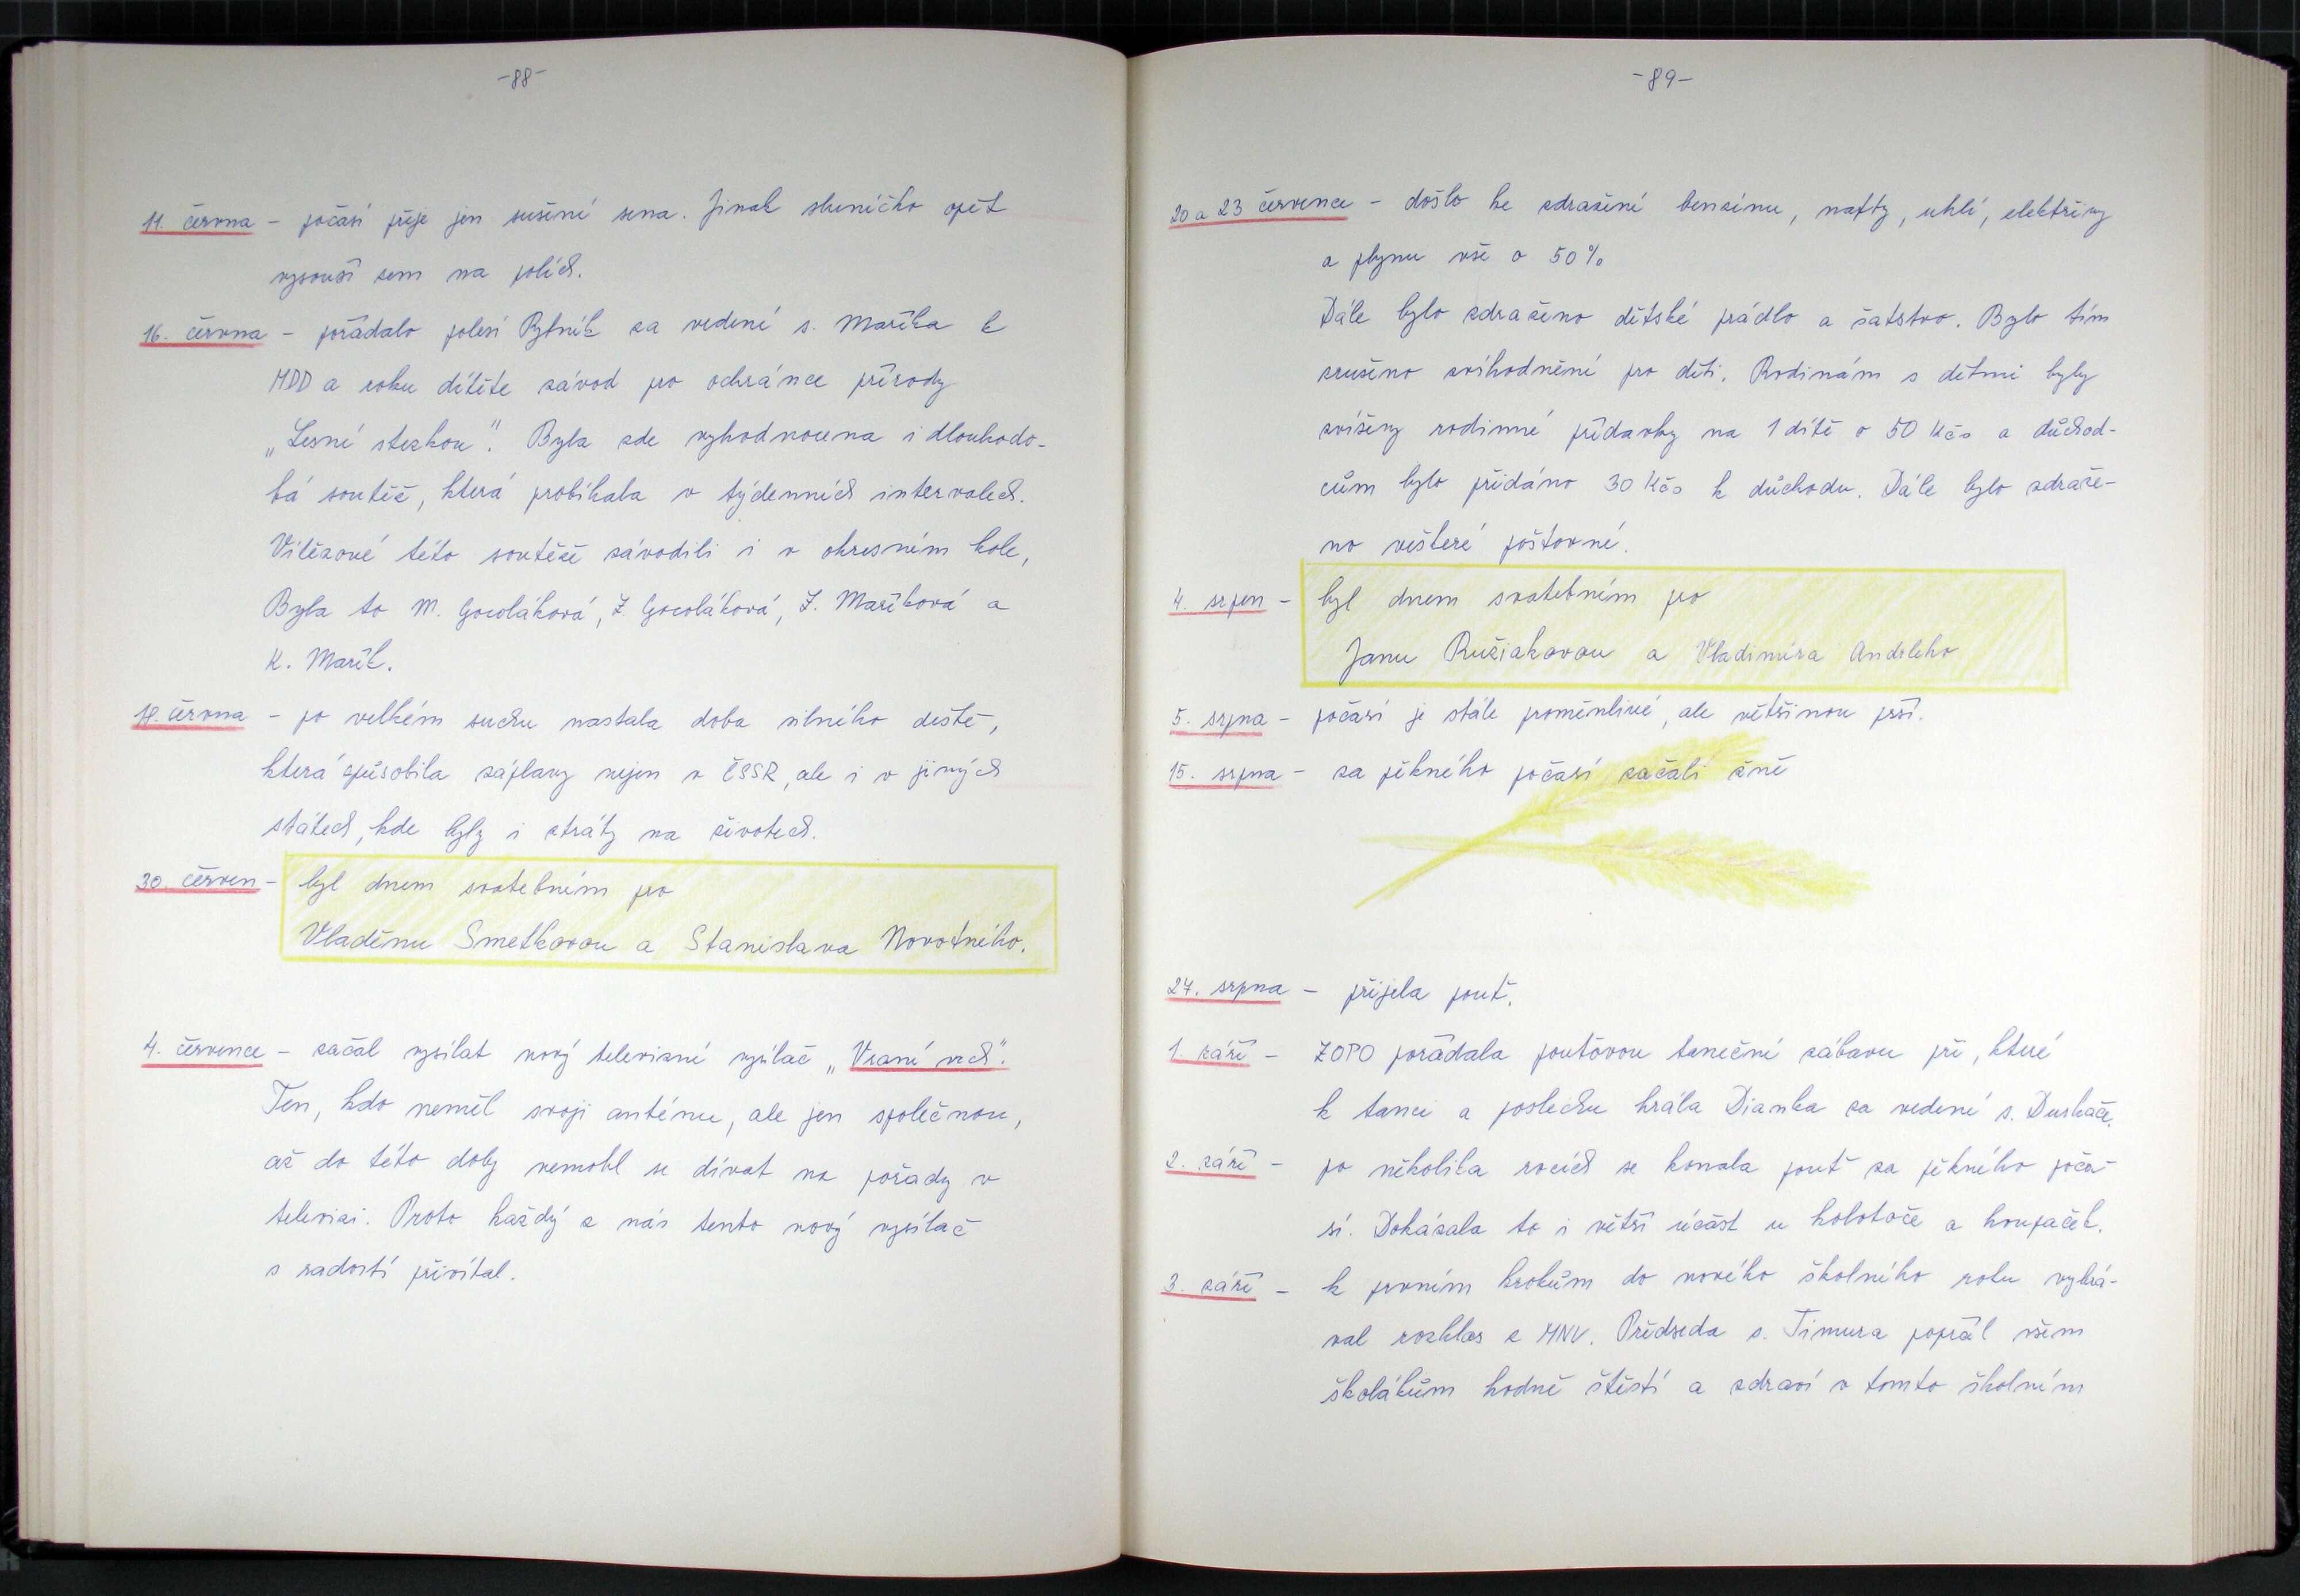 -88-
11. června - počasí přeje jen sušení sena. Jinak sluníčko opět
vysouší zem na polích.
16. června - pořádalo polesí Rybník za vedení s. Maříka k
MDD a roku dítěte závod pro ochránce přírody
„Lesní stezkou". Byla zde vyhodnocena i dlouhodo-
bá soutěž, která probíhala v týdenních intervalech.
Vítězové této soutěže závodili i v okresním kole,
Byla to M. Gocoláková, Z. Gocoláková, Z. Maříková a
K. Mařík.
18. června - po velkém suchu nastala doba silného deště,
která způsobila záplavy nejen v ČSSR, ale i v jiných
státech, kde byly i ztráty na životech.
30. červen - byl dnem svatebním pro
Vladěnu Smetkovou a Stanislava Novotného.
4. července - začal vysílat nový televizní vysílač „Vraní vrch".
Ten, kdo neměl svoji anténu, ale jen společnou,
až do této doby nemohl se dívat na pořady v
televizi. Proto každý z nás tento nový vysílač
s radostí přivítal.
-89-
20 a 23 července - došlo ke zdražení benzinu, nafty, uhlí, elektřiny
a plynu vše o 50%
Dále bylo zdraženo dětské prádlo a šatstvo. Bylo tím
zrušeno zvíhodnění pro děti. Rodinám s dětmi byly
zvíšeny rodinné přídavky na 1 dítě o 50 Kčs a důchod-
cům bylo přidáno 30 Kčs k důchodu. Dále bylo zdraže-
no veškeré poštovné.
4. srpen - byl dnem svatebním pro
Janu Ružiakovou a Vladimíra Andrleho
5. srpna - počasí je stále proměnlivé, ale většinou prší.
15. srpna - za pěkného počasí začali žně
27. srpna - přijela pouť.
1. září - ZOPO pořádala pouťovou taneční zábavu při, které
k tanci a poslechu hrála Dianka za vedení s. Durkáče.
2. září - po několika rocích se konala pouť za pěkného poča-
sí. Dokázala to i větší účast u kolotoče a houpaček.
3. září - k prvním krokům do nového školního roku vyhrá-
val rozhlas z MNV. Předseda s. Timura popřál všem
školákům hodně štěstí a zdraví v tomto školním